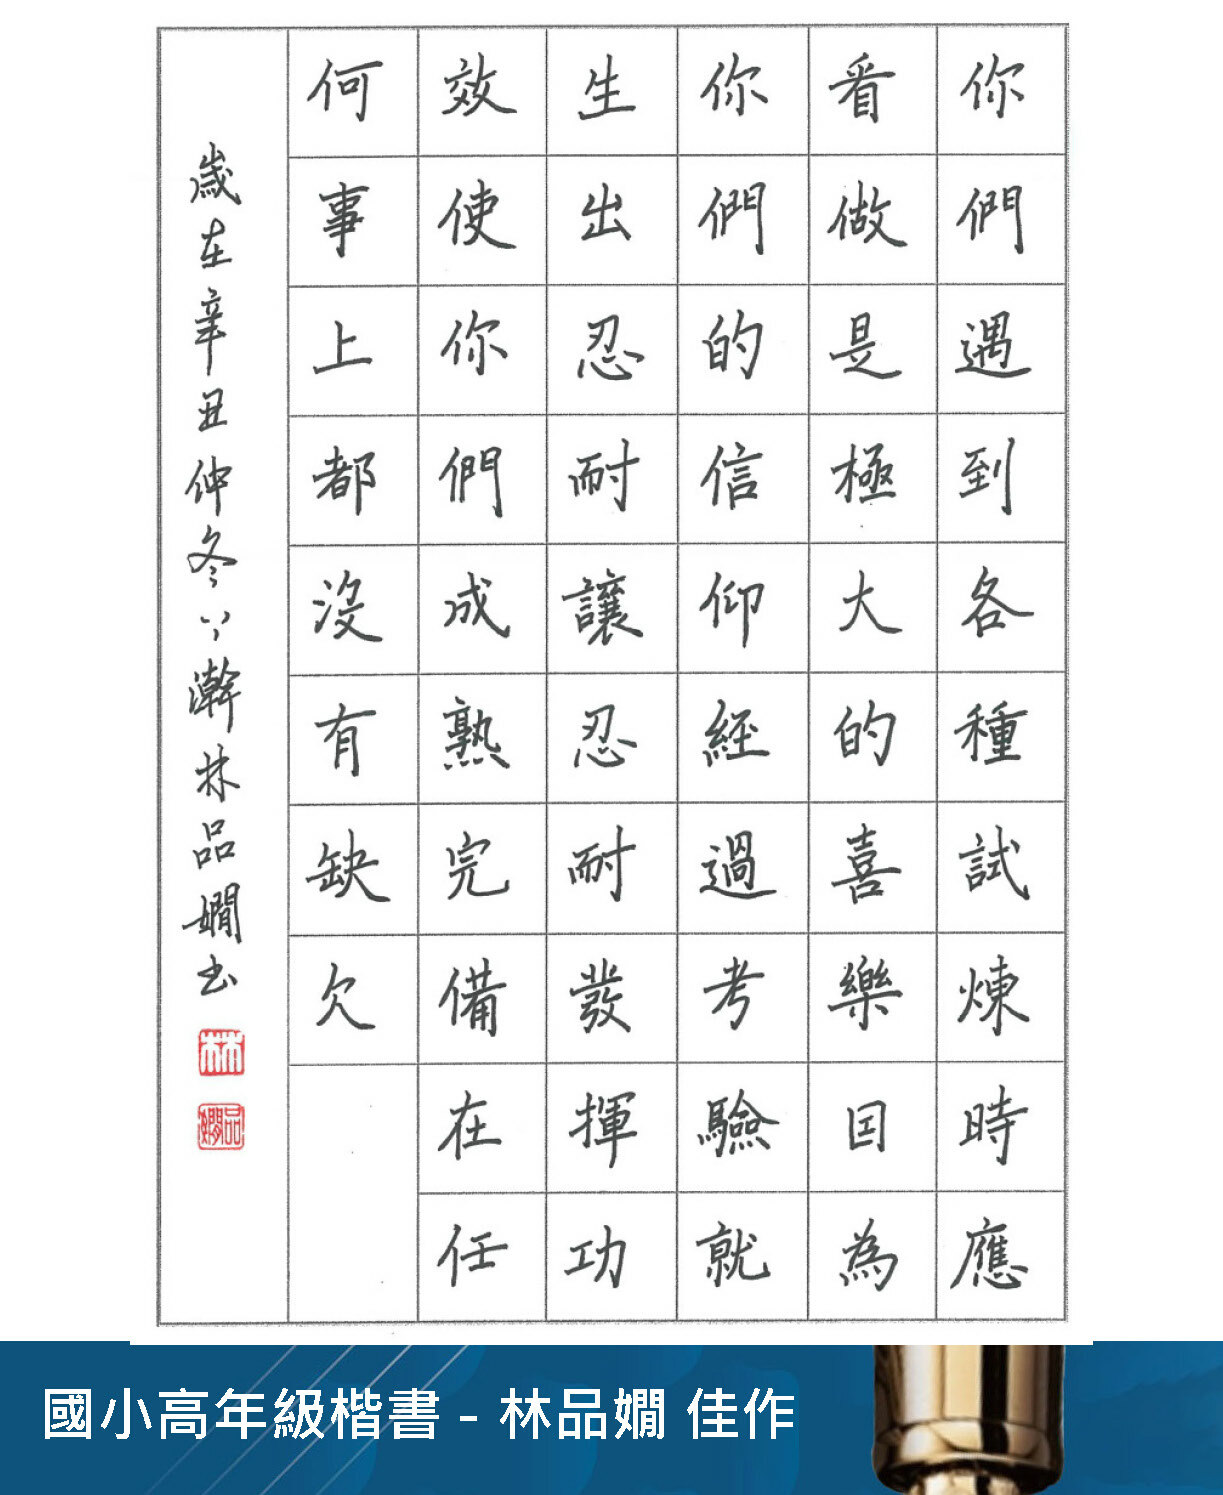 你們遇到各種試煉時應
看做是極大的喜樂因為
你們的信仰經過考驗就
生出忍耐讓忍耐發揮功
效使你們成熟完備在任
何事上都沒有缺欠
歲在辛丑仲冬 瀚林品嫺書
林
品嫺
國小高年級楷書 - 林品嫺 佳作